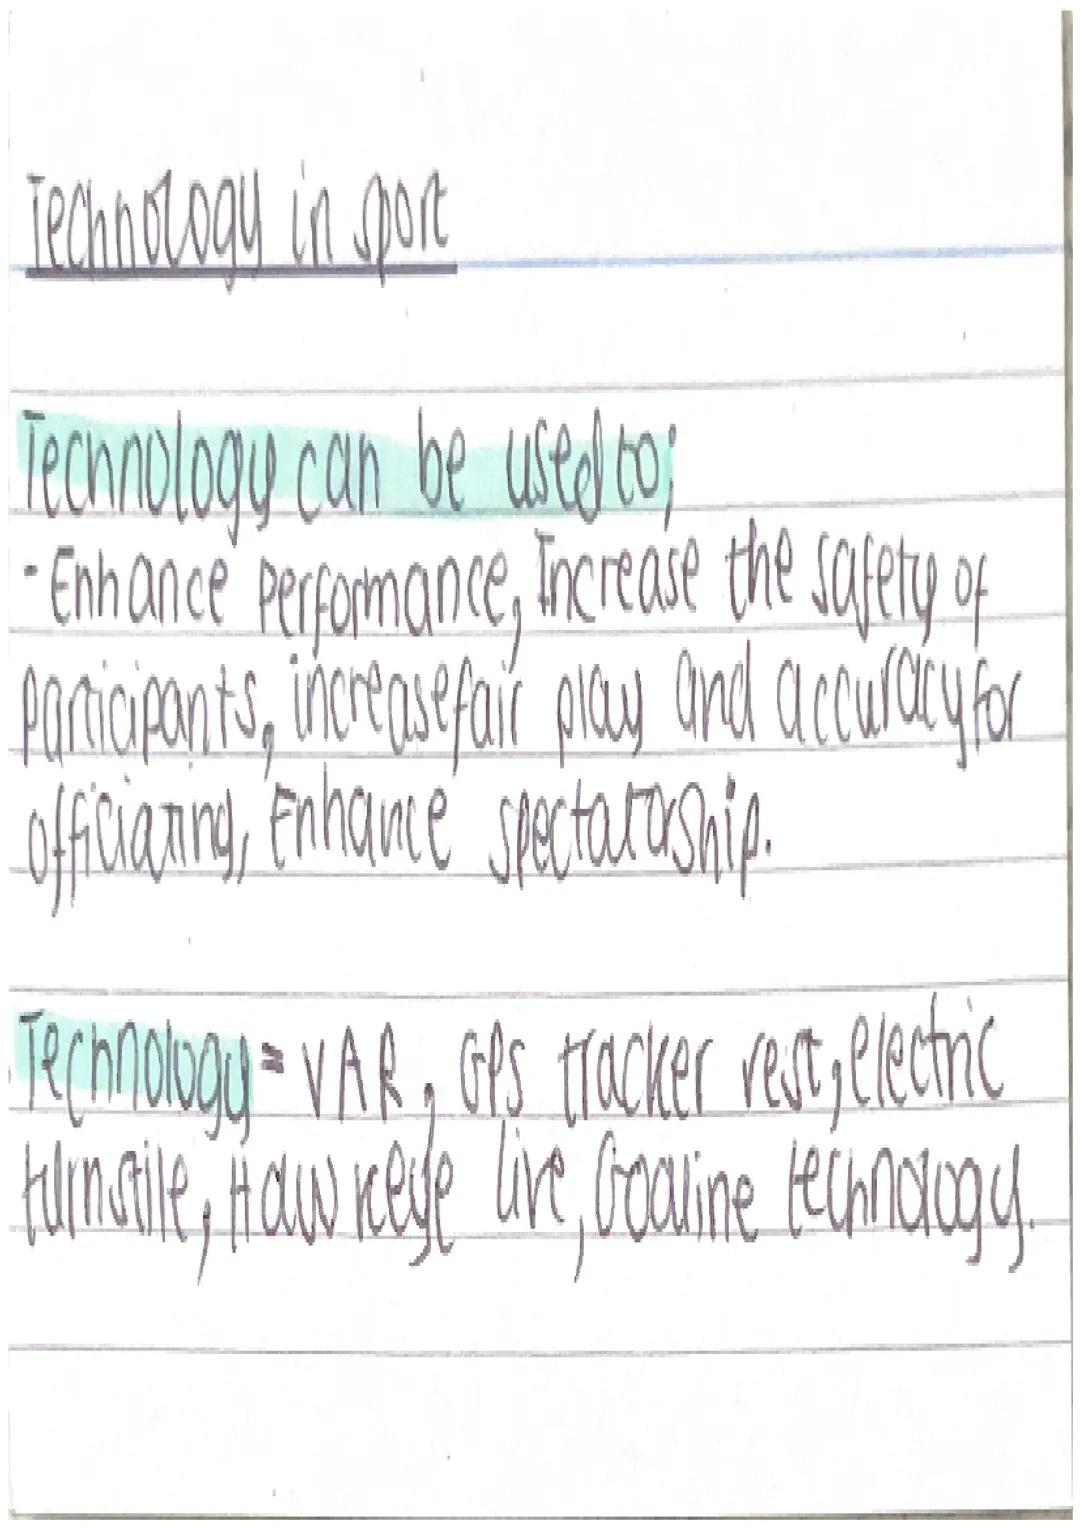 Technology in sport
Technology can be used to;
- Enhance performance, Increase the safety of
participants, increase fair play and accuracy for
officiating, Enhance spectatorship.
Technology = VAR, GPS tracker vest, electric
turnstile, Hawkeye live, Goaline technology.